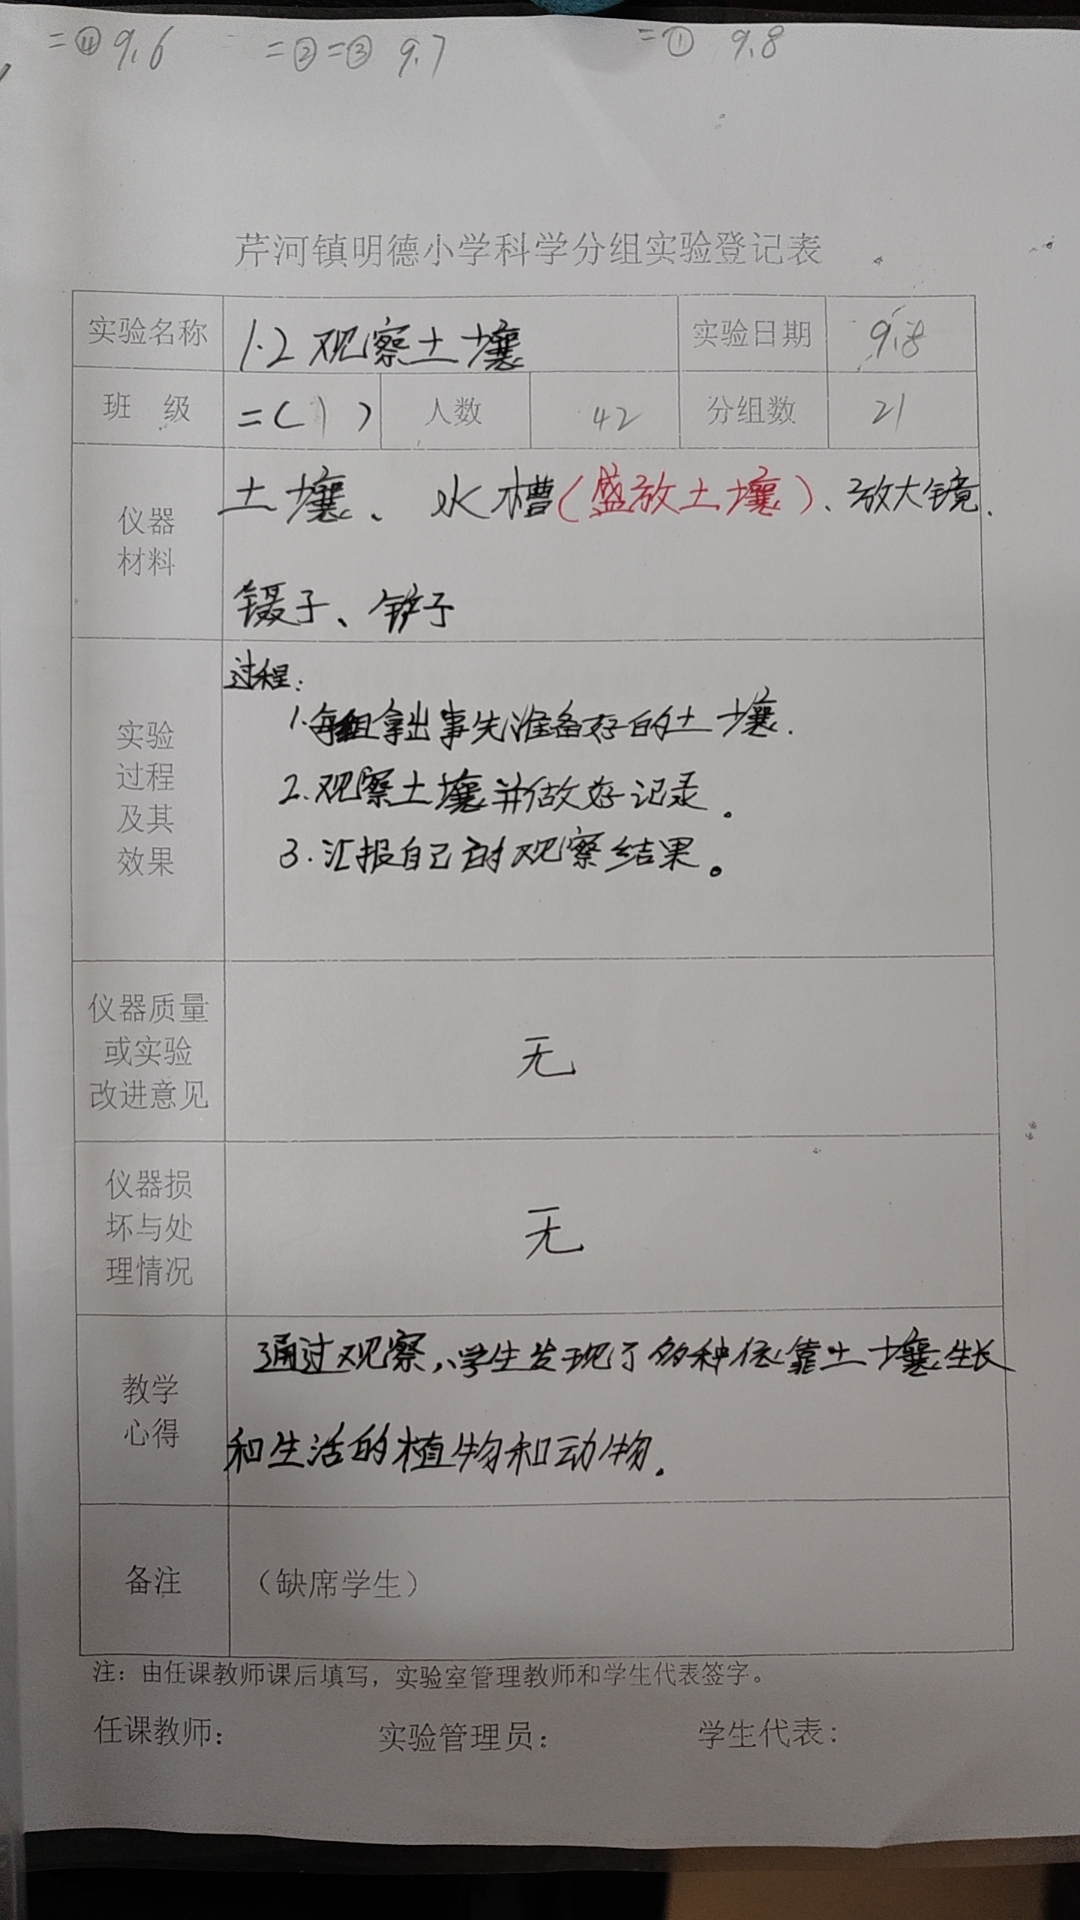 二④ 9.6 二②二③ 9.7 二① 9.8
芹河镇明德小学科学分组实验登记表
实验名称 1.2 观察土壤 实验日期 9.8
班 级 二(1) 人数 42 分组数 21
仪器
材料
土壤、水槽(盛放土壤)、放大镜.
镊子、铲子
实验
过程
及其
效果
过程:
1.每组拿出事先准备好的土壤.
2.观察土壤并做好记录。
3.汇报自己的观察结果。
仪器质量
或实验
改进意见
无
仪器损
坏与处
理情况
无
教学
心得
通过观察,学生发现了多种依靠土壤生长
和生活的植物和动物.
备注 (缺席学生)
注:由任课教师课后填写,实验室管理教师和学生代表签字。
任课教师: 实验管理员: 学生代表: